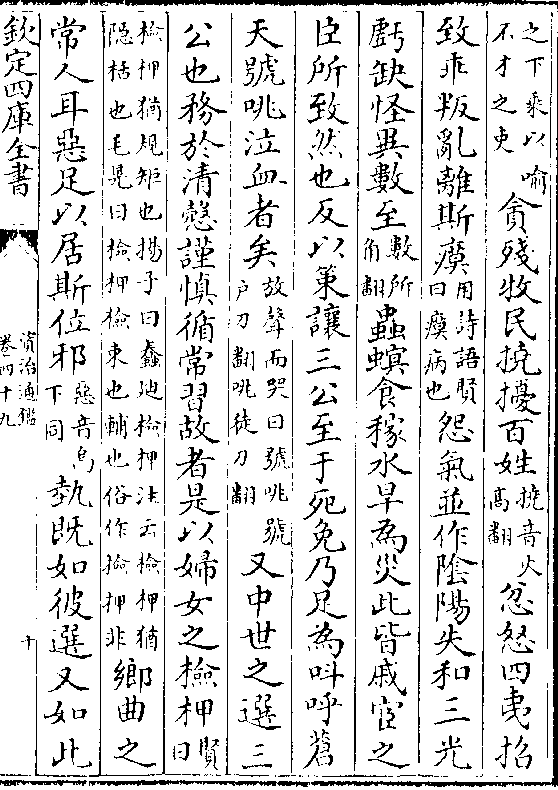 之下乘以喻
不才之吏
貪殘牧民撓擾百姓
撓音火
高翻
忿怒四夷招
致乖叛亂離斯瘼
用詩語賢
曰瘼病也
怨氣並作陰陽失和三光
虧缺怪異數至
數所
角翻
蟲螟食稼水旱為災此皆戚宦之
臣所致然也反以策讓三公至于死免乃足為呌呼蒼
天號咷泣血者矣
放聲而哭曰號咷號
戸刀翻咷徒刀翻
又中世之選三
公也務於清慤謹慎循常習故者是以婦女之檢柙
賢曰
檢柙猶規矩也揚子曰蠢迪檢柙注云檢柙猶
隐括也毛晃曰檢柙檢束也輔也俗作撿押非
鄉曲之
常人耳惡足以居斯位邪
惡音烏
下同
埶既如彼選又如此
欽定四庫全書
資治通鑑
卷四十九
十